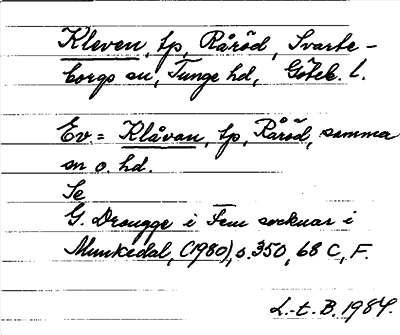 Kleven, tp, Råröd, Svarte-
borgs sn, Tunge hd, Göteb. l.
Ev. = Klåvan, tp, Råröd, samma
sn o. hd.
Se
G. Drougge i Fem socknar i
Munkedal, (1980), s. 350, 68 C, F.
L.-t. B. 1984.